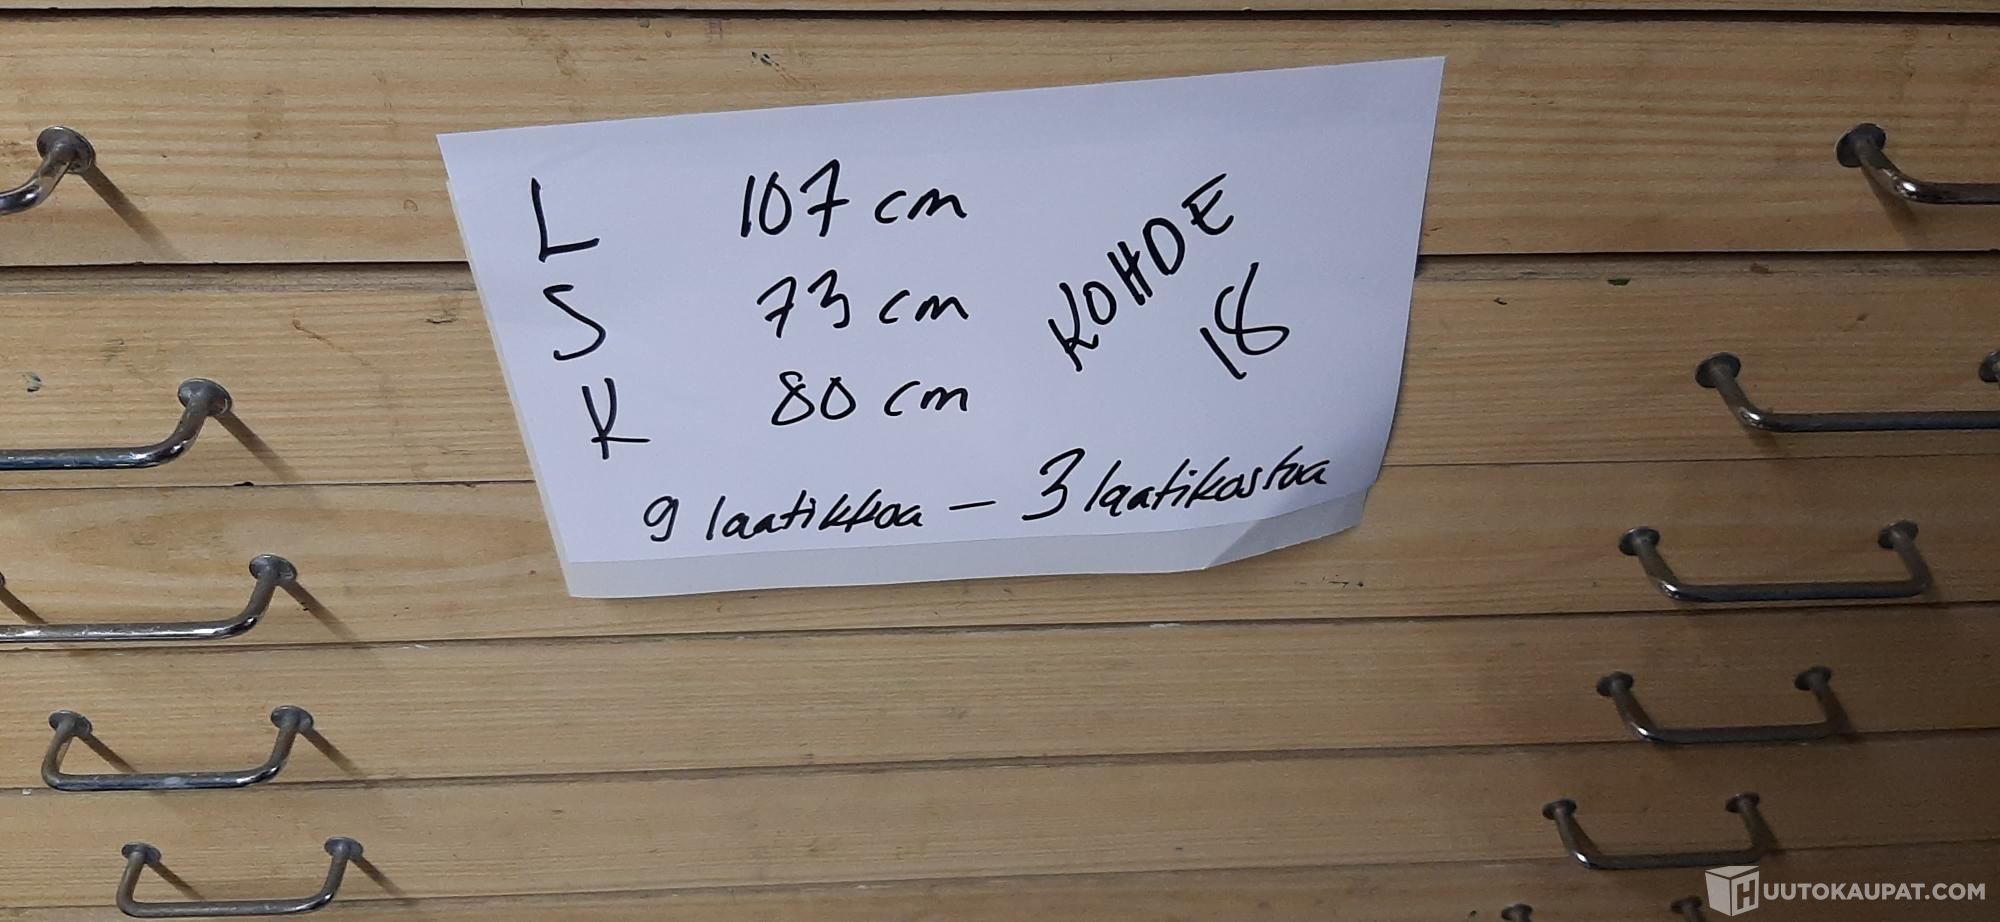 L 107 cm
S 73 cm
K 80 cm
KOHDE
18
9 laatikkoa – 3 laatikostoa
HUUTOKAUPAT.COM